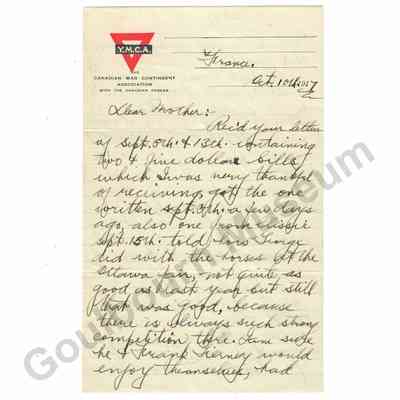 Y.M.C.A.
CANADIAN WAR CONTINGENT
ASSOCIATION
WITH THE CANADIAN FORCES
France.
Oct. 10th. 1917
Dear Mother:-
Rec'd your letter
of Sept. 8th. & 13th. containing
two & five dollar bills
which I was very thankful
of receiving, got the one
written Sept. 3th. a few days
ago, also one from
Sept. 15th. told how George
did with the horses at the
Ottawa fair, not quite as
good as last year but still
that was good, because
there is always such strong
competition there. I am sure
he & Frank Tierney would
enjoy themselves, had
Goulbourn Museum